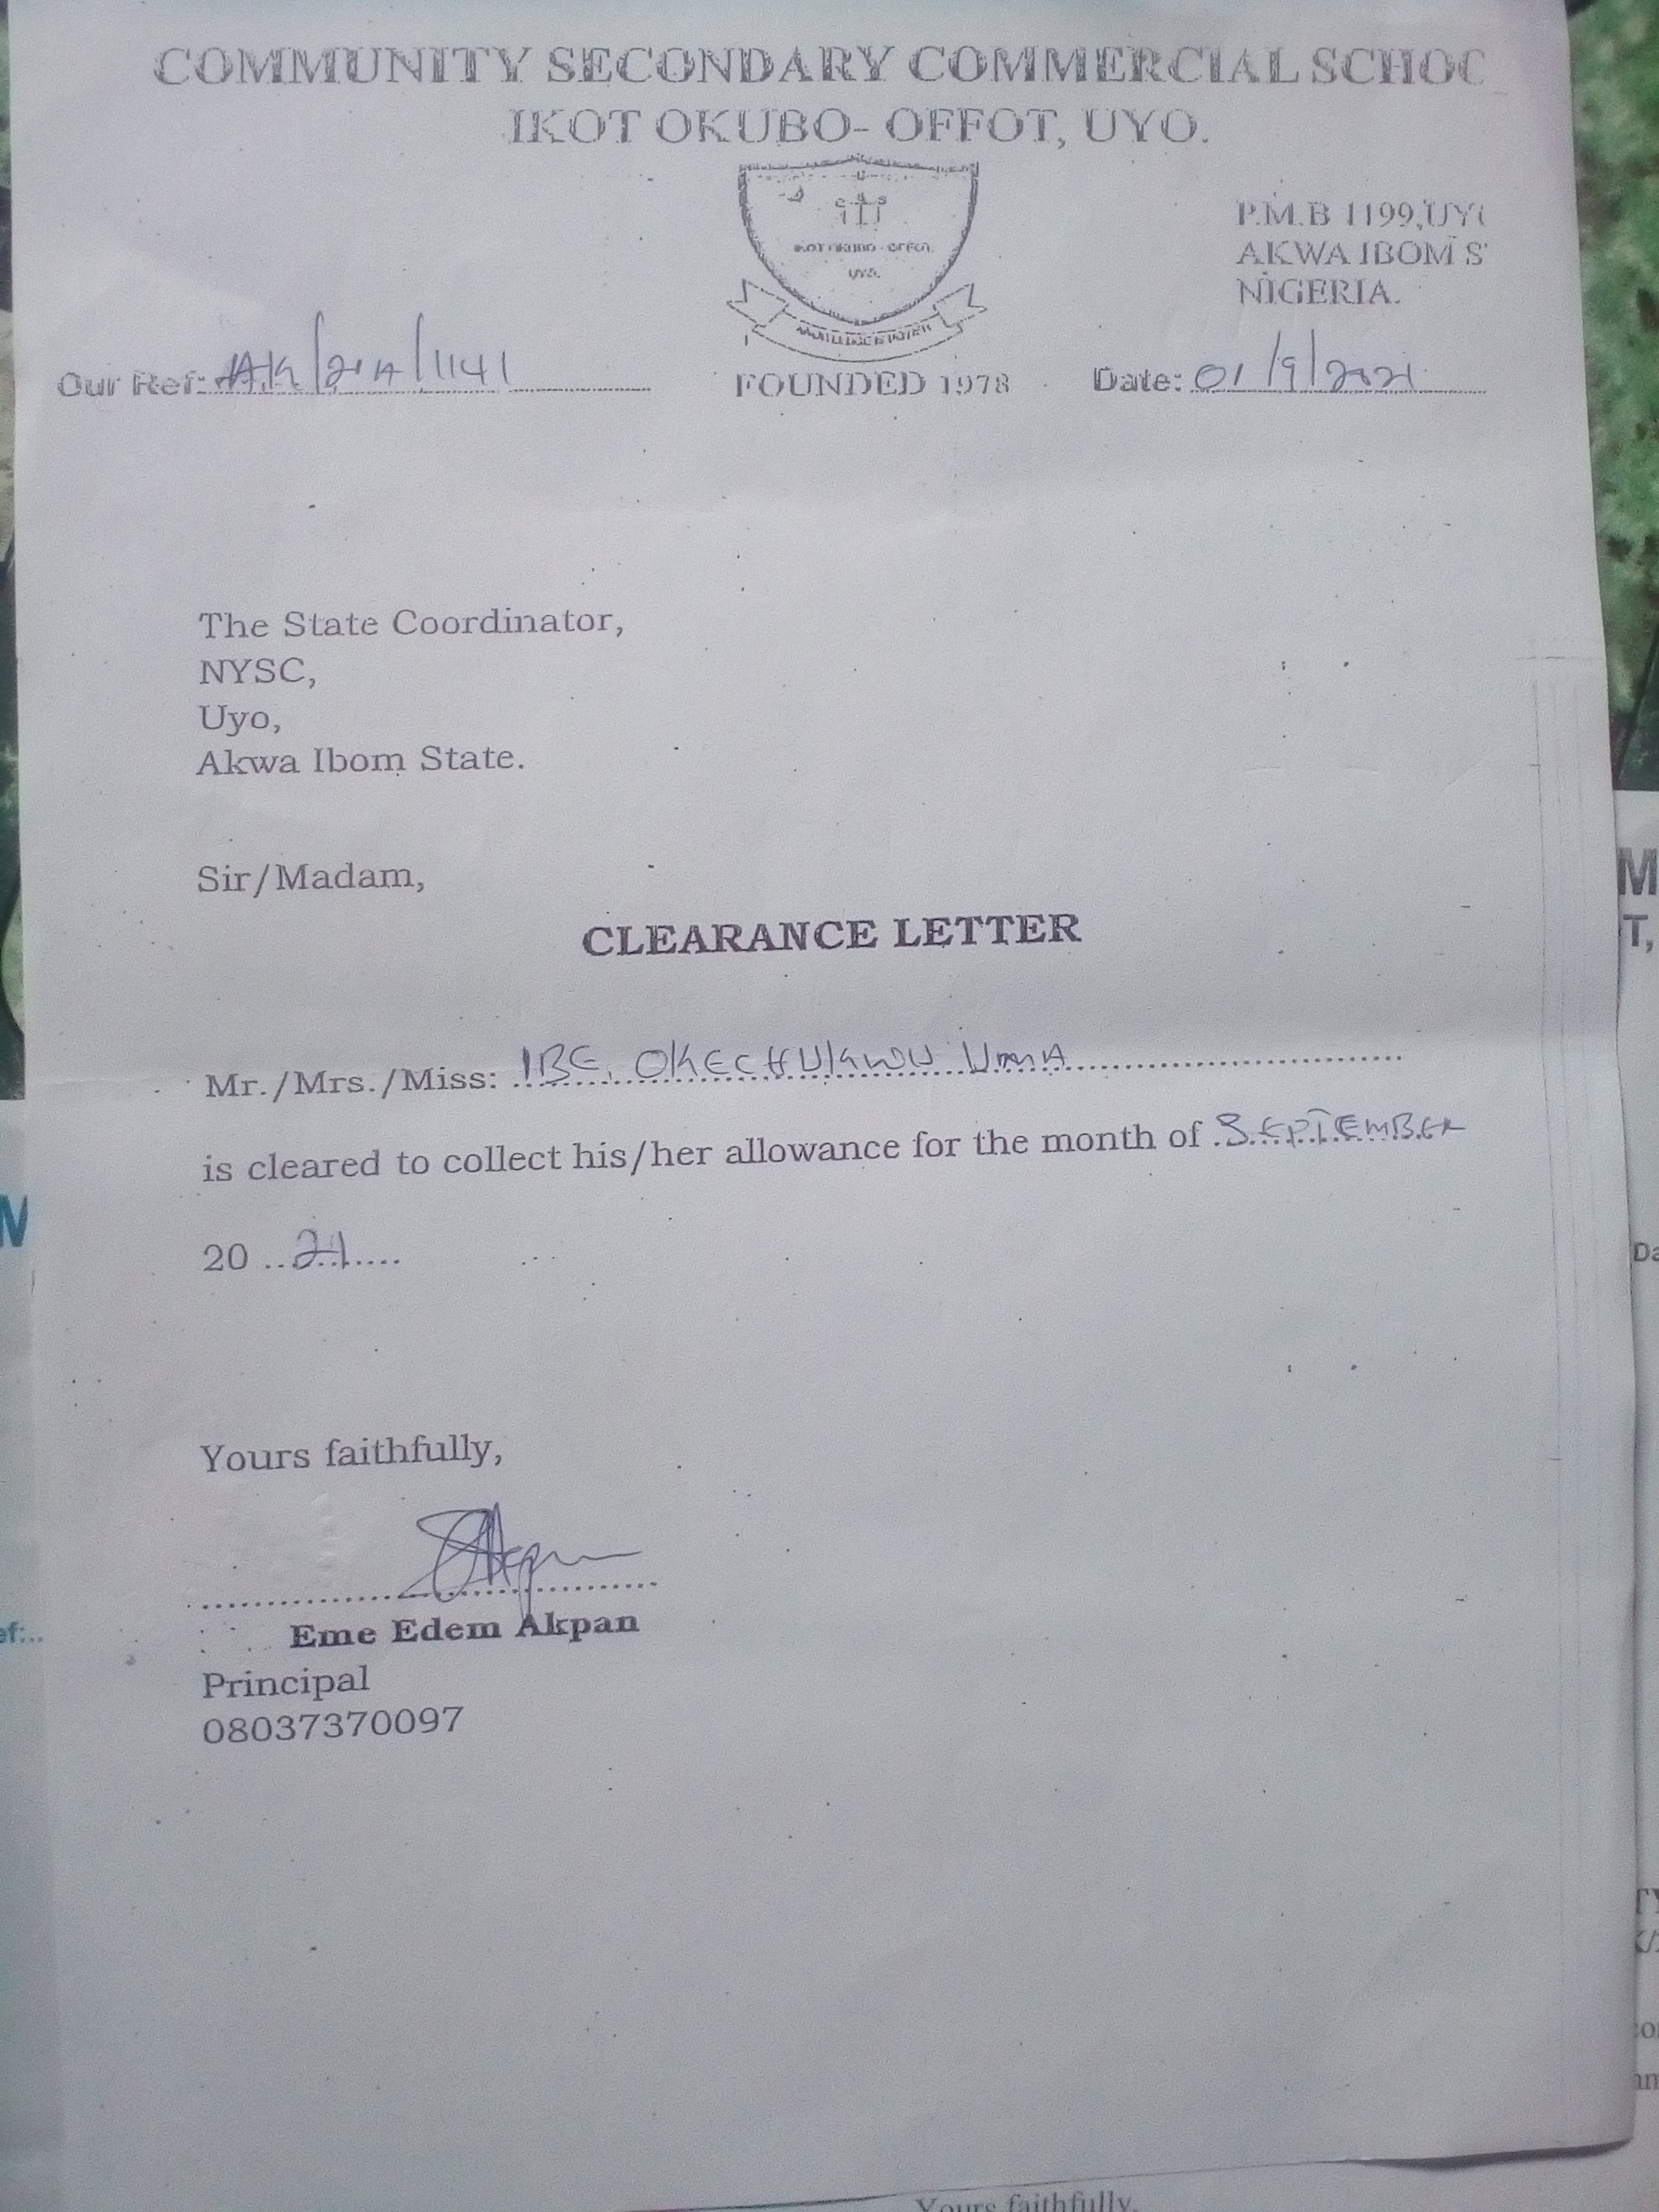 COMMUNITY SECONDARY COMMERCIAL SCHOO
IKOT OKUBO- OFFOT, UYO.
IKOT OKUBO - OFFOT,
UYO.
P.M.B 1199,UYO
AKWA IBOM S
NIGERIA.
Our Ref: AK/21A/1141
FOUNDED 1978
Date: 01/9/2021
The State Coordinator,
NYSC,
Uyo,
Akwa Ibom State.
Sir/Madam,
CLEARANCE LETTER
Mr./Mrs./Miss: IBE, OKECHUKWU UMA
is cleared to collect his/her allowance for the month of SEPTEMBER
20 ..21....
Yours faithfully,
Eme Edem Akpan
Principal
08037370097
Yours faithfully,